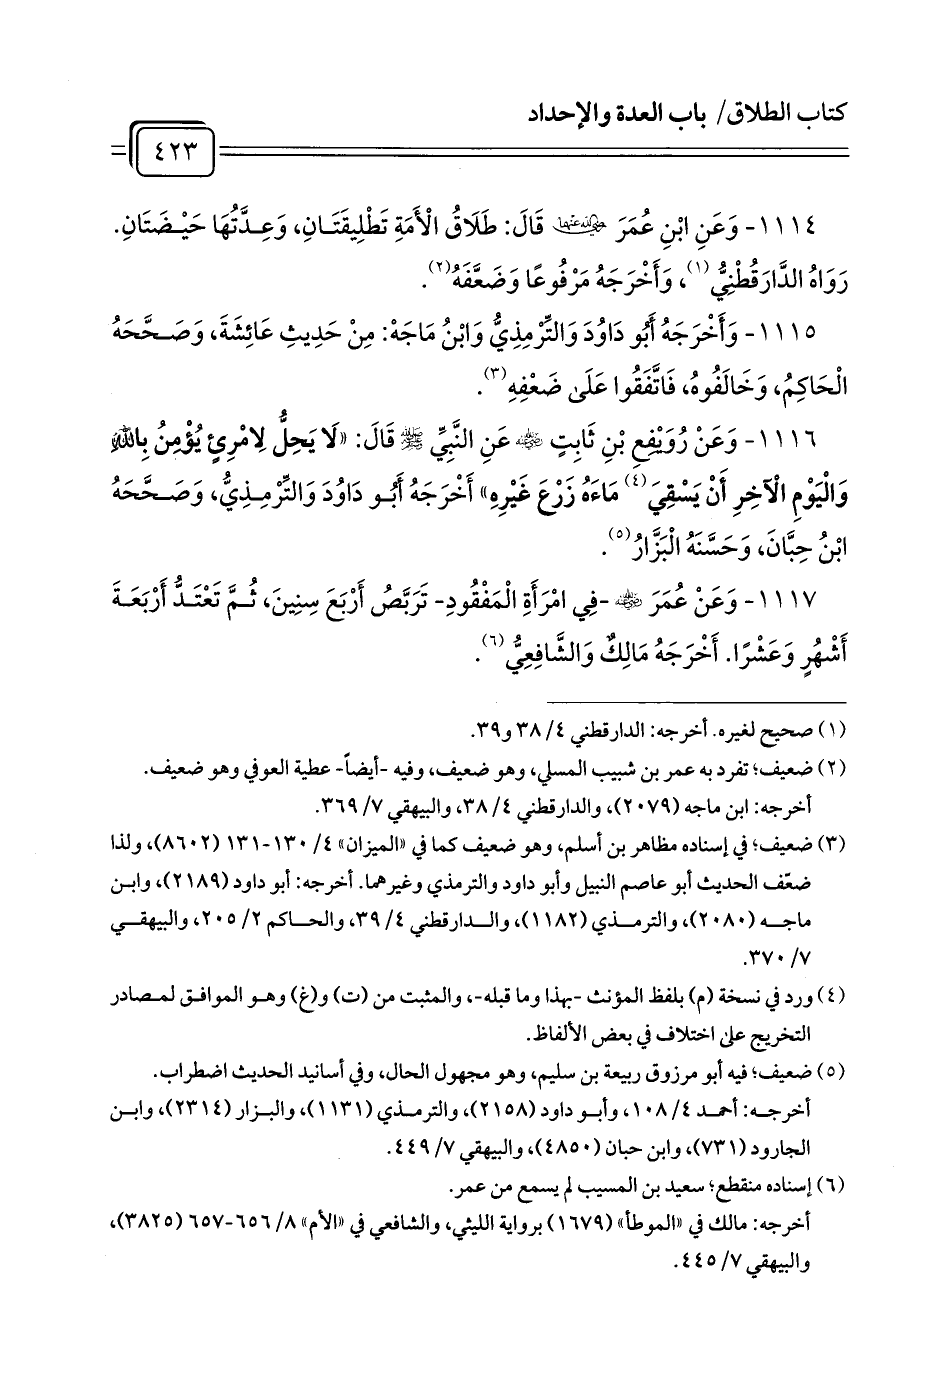 كتاب الطلاق/ باب العدة والإحداد
٤٢٣
١١١٤- وَعَنِ ابْنِ عُمَرَ رضي الله عنهما قَالَ: طَلَاقُ الْأَمَةِ تَطْلِيقَتَانِ، وَعِدَّتُهَا حَيْضَتَانِ.
رَوَاهُ الدَّارَقُطْنِيُّ(١)، وَأَخْرَجَهُ مَرْفُوعًا وَضَعَّفَهُ(٢).
١١١٥- وَأَخْرَجَهُ أَبُو دَاوُدَ وَالتِّرْمِذِيُّ وَابْنُ مَاجَهْ: مِنْ حَدِيثِ عَائِشَةَ، وَصَحَّحَهُ
الْحَاكِمُ، وَخَالَفُوهُ، فَاتَّفَقُوا عَلَى ضَعْفِهِ(٣).
١١١٦- وَعَنْ رُوَيْفِعِ بْنِ ثَابِتٍ رضي الله عنه عَنِ النَّبِيِّ ﷺ قَالَ: «لَا يَحِلُّ لِامْرِئٍ يُؤْمِنُ بِاللهِ
وَالْيَوْمِ الْآخِرِ أَنْ يَسْقِيَ(٤) مَاءَهُ زَرْعَ غَيْرِهِ» أَخْرَجَهُ أَبُو دَاوُدَ وَالتِّرْمِذِيُّ، وَصَحَّحَهُ
ابْنُ حِبَّانَ، وَحَسَّنَهُ الْبَزَّارُ(٥).
١١١٧- وَعَنْ عُمَرَ رضي الله عنه -فِي امْرَأَةِ الْمَفْقُودِ- تَرَبَّصُ أَرْبَعَ سِنِينَ، ثُمَّ تَعْتَدُّ أَرْبَعَةَ
أَشْهُرٍ وَعَشْرًا. أَخْرَجَهُ مَالِكٌ وَالشَّافِعِيُّ(٦).
(١) صحيح لغيره. أخرجه: الدارقطني ٤/ ٣٨ و٣٩.
(٢) ضعيف؛ تفرد به عمر بن شبيب المسلي، وهو ضعيف، وفيه -أيضاً- عطية العوفي وهو ضعيف.
أخرجه: ابن ماجه (٢٠٧٩)، والدارقطني ٤/ ٣٨، والبيهقي ٧/ ٣٦٩.
(٣) ضعيف؛ في إسناده مظاهر بن أسلم، وهو ضعيف كما في «الميزان» ٤/ ١٣٠-١٣١ (٨٦٠٢)، ولذا
ضعّف الحديث أبو عاصم النبيل وأبو داود والترمذي وغيرهما. أخرجه: أبو داود (٢١٨٩)، وابن
ماجه (٢٠٨٠)، والترمذي (١١٨٢)، والدارقطني ٤/ ٣٩، والحاكم ٢/ ٢٠٥، والبيهقي
٧/ ٣٧٠.
(٤) ورد في نسخة (م) بلفظ المؤنث -بهذا وما قبله-، والمثبت من (ت) و(غ) وهو الموافق لمصادر
التخريج على اختلاف في بعض الألفاظ.
(٥) ضعيف؛ فيه أبو مرزوق ربيعة بن سليم، وهو مجهول الحال، وفي أسانيد الحديث اضطراب.
أخرجه: أحمد ٤/ ١٠٨، وأبو داود (٢١٥٨)، والترمذي (١١٣١)، والبزار (٢٣١٤)، وابن
الجارود (٧٣١)، وابن حبان (٤٨٥٠)، والبيهقي ٧/ ٤٤٩.
(٦) إسناده منقطع؛ سعيد بن المسيب لم يسمع من عمر.
أخرجه: مالك في «الموطأ» (١٦٧٩) برواية الليثي، والشافعي في «الأم» ٨/ ٦٥٦-٦٥٧ (٣٨٢٥)،
والبيهقي ٧/ ٤٤٥.